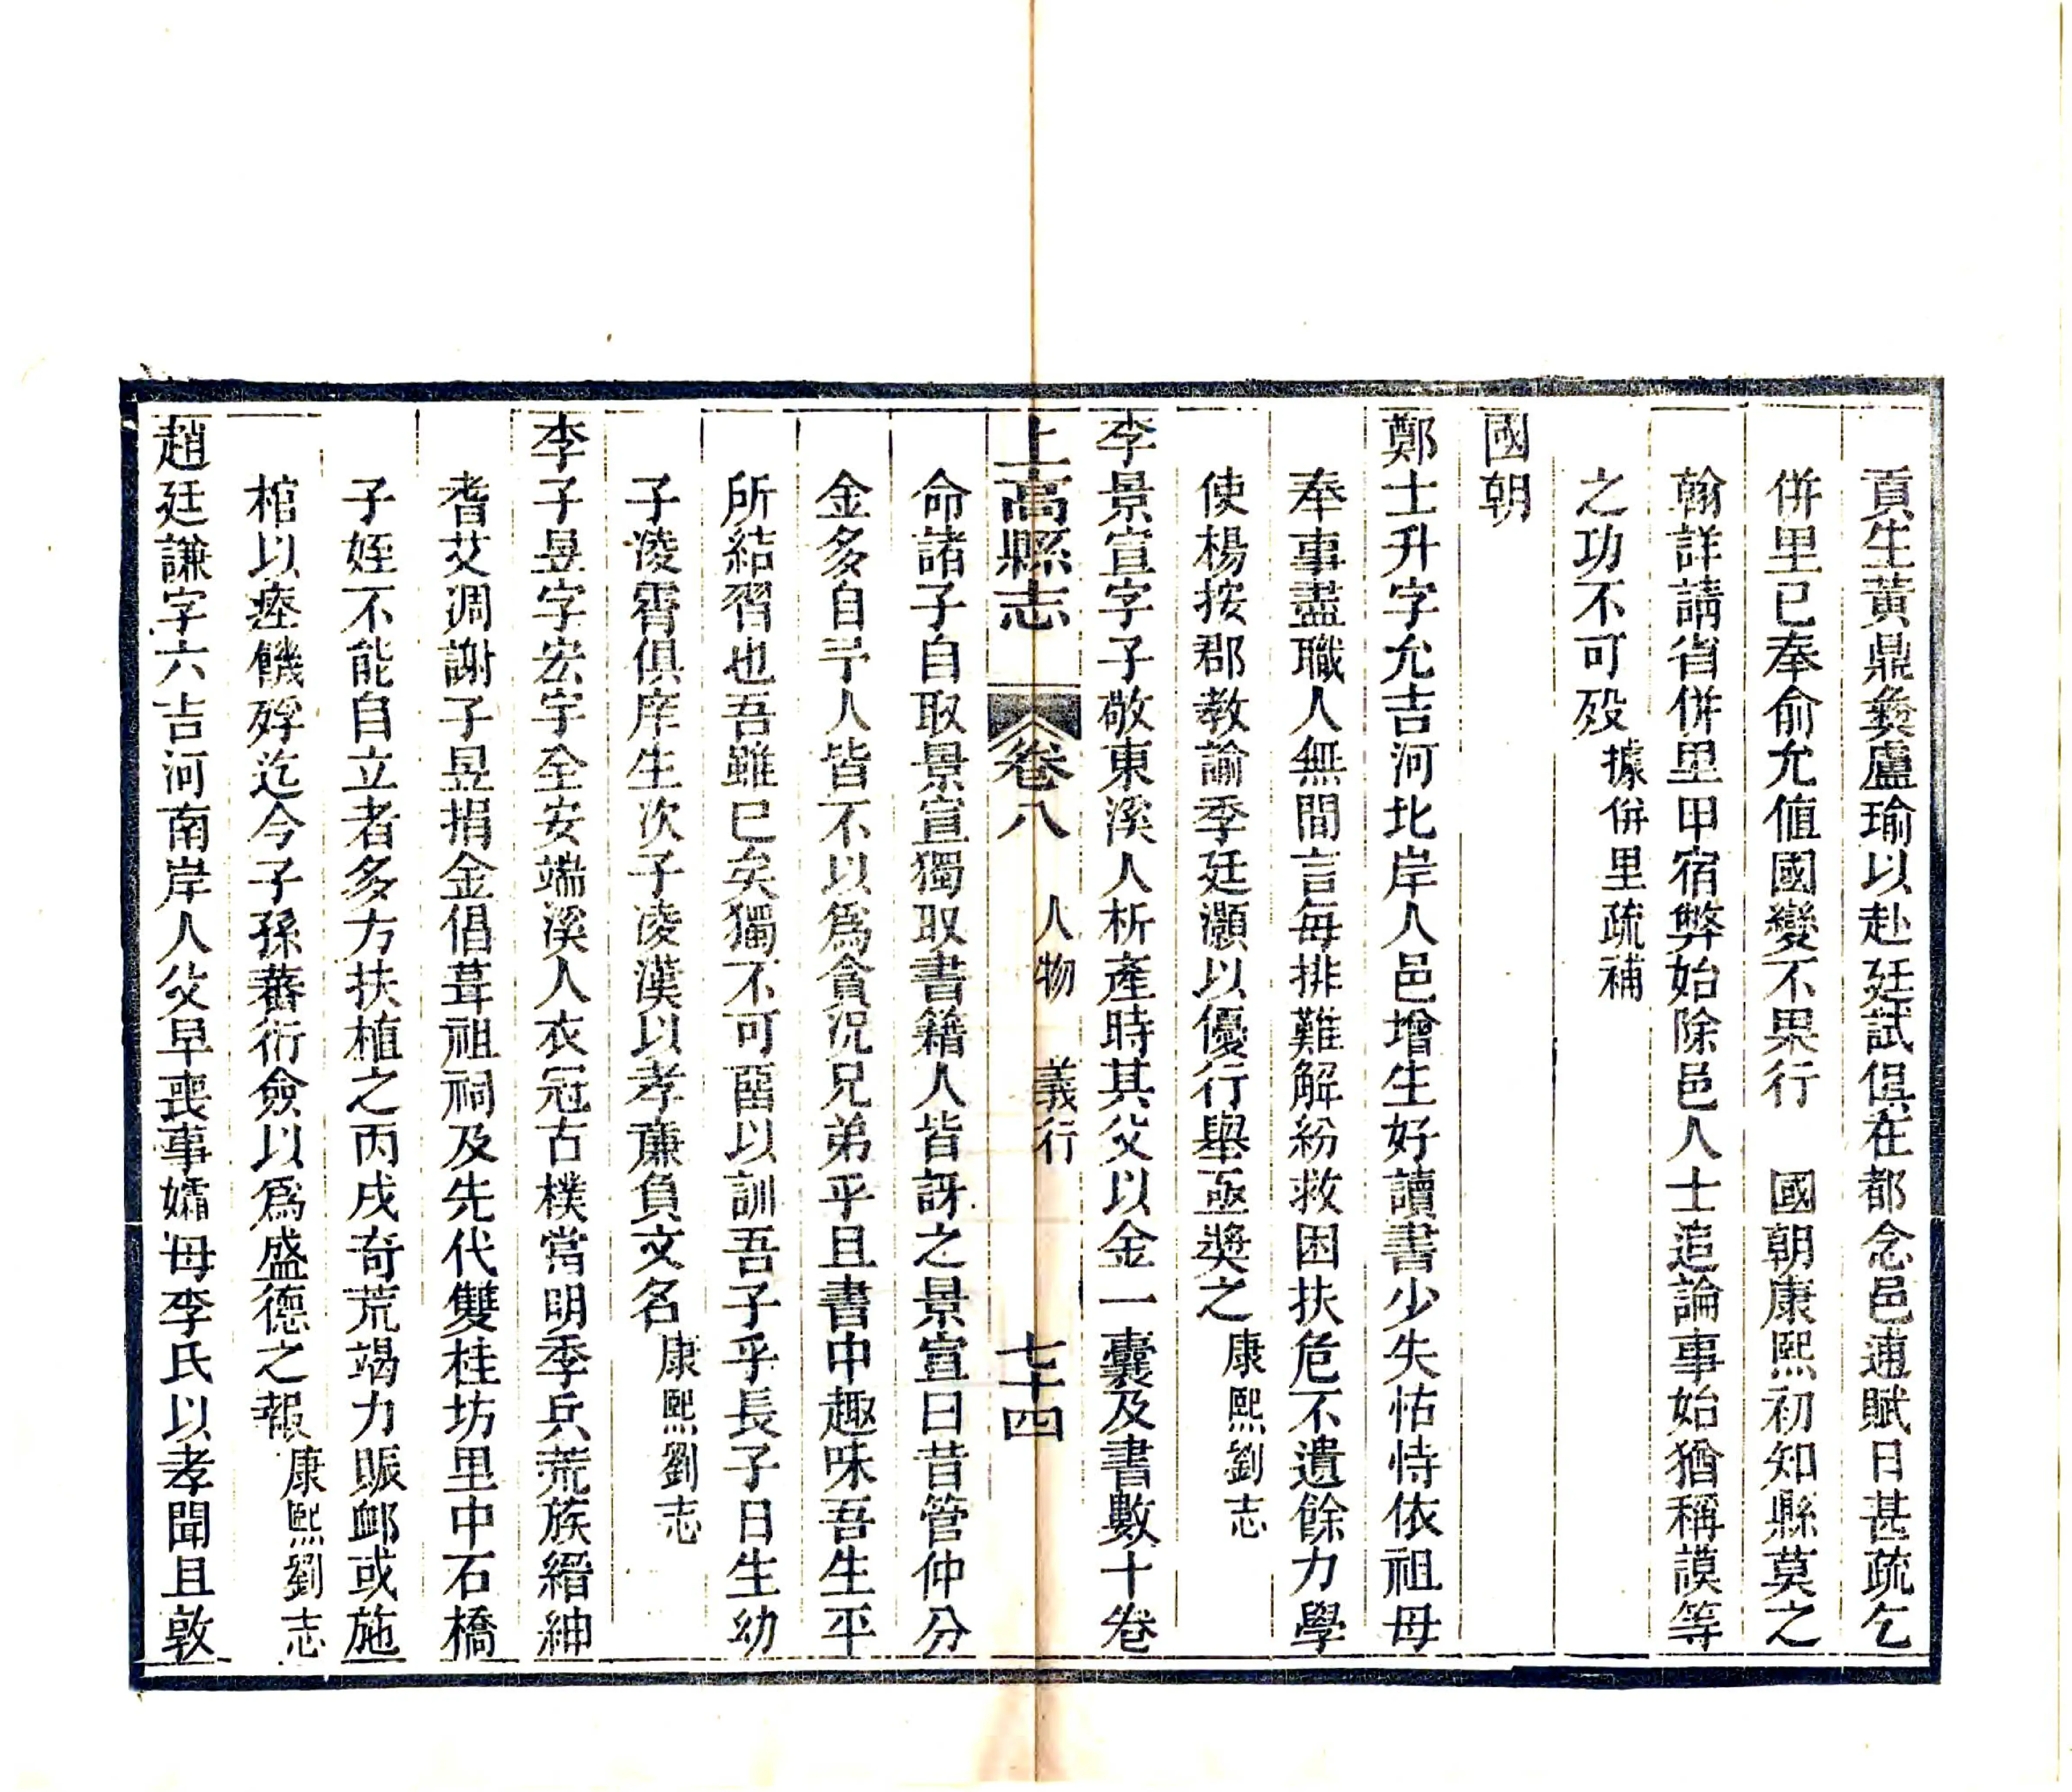 貢生黃鼎彝盧瑜以赴廷試俱在都念邑逋賦日甚疏乞
併里已奉俞允值國變不果行　國朝康熙初知縣莫之
翰詳請省併里甲宿弊始除邑人士追論事始猶稱謨等
之功不可歿據併里疏補
國朝
鄭士升字允吉河北岸人邑增生好讀書少失怙恃依祖母
奉事盡職人無間言每排難解紛救困扶危不遺餘力學
使楊按郡教諭季廷灝以優行舉亟獎之康熙劉志
李景宣字子敬東溪人析產時其父以金一囊及書數十卷
上高縣志　卷八　人物　義行　七十四
命諸子自取景宣獨取書籍人皆訝之景宣曰昔管仲分
金多自予人皆不以為貪況兄弟乎且書中趣味吾生平
所結習也吾雖已矣獨不可畱以訓吾子乎長子日生幼
子淩霄俱庠生次子凌漢以孝廉負文名康熙劉志
李子昱字宏宇全安端溪人衣冠古樸當明季兵荒族縉紳
耆艾凋謝子昱捐金倡葺祖祠及先代雙桂坊里中石橋
子姪不能自立者多方扶植之丙戌奇荒竭力賑卹或施
棺以瘞饑殍迄今子孫蕃衍僉以為盛德之報康熙劉志
趙廷謙字六吉河南岸人父早喪事孀母李氏以孝聞且敦